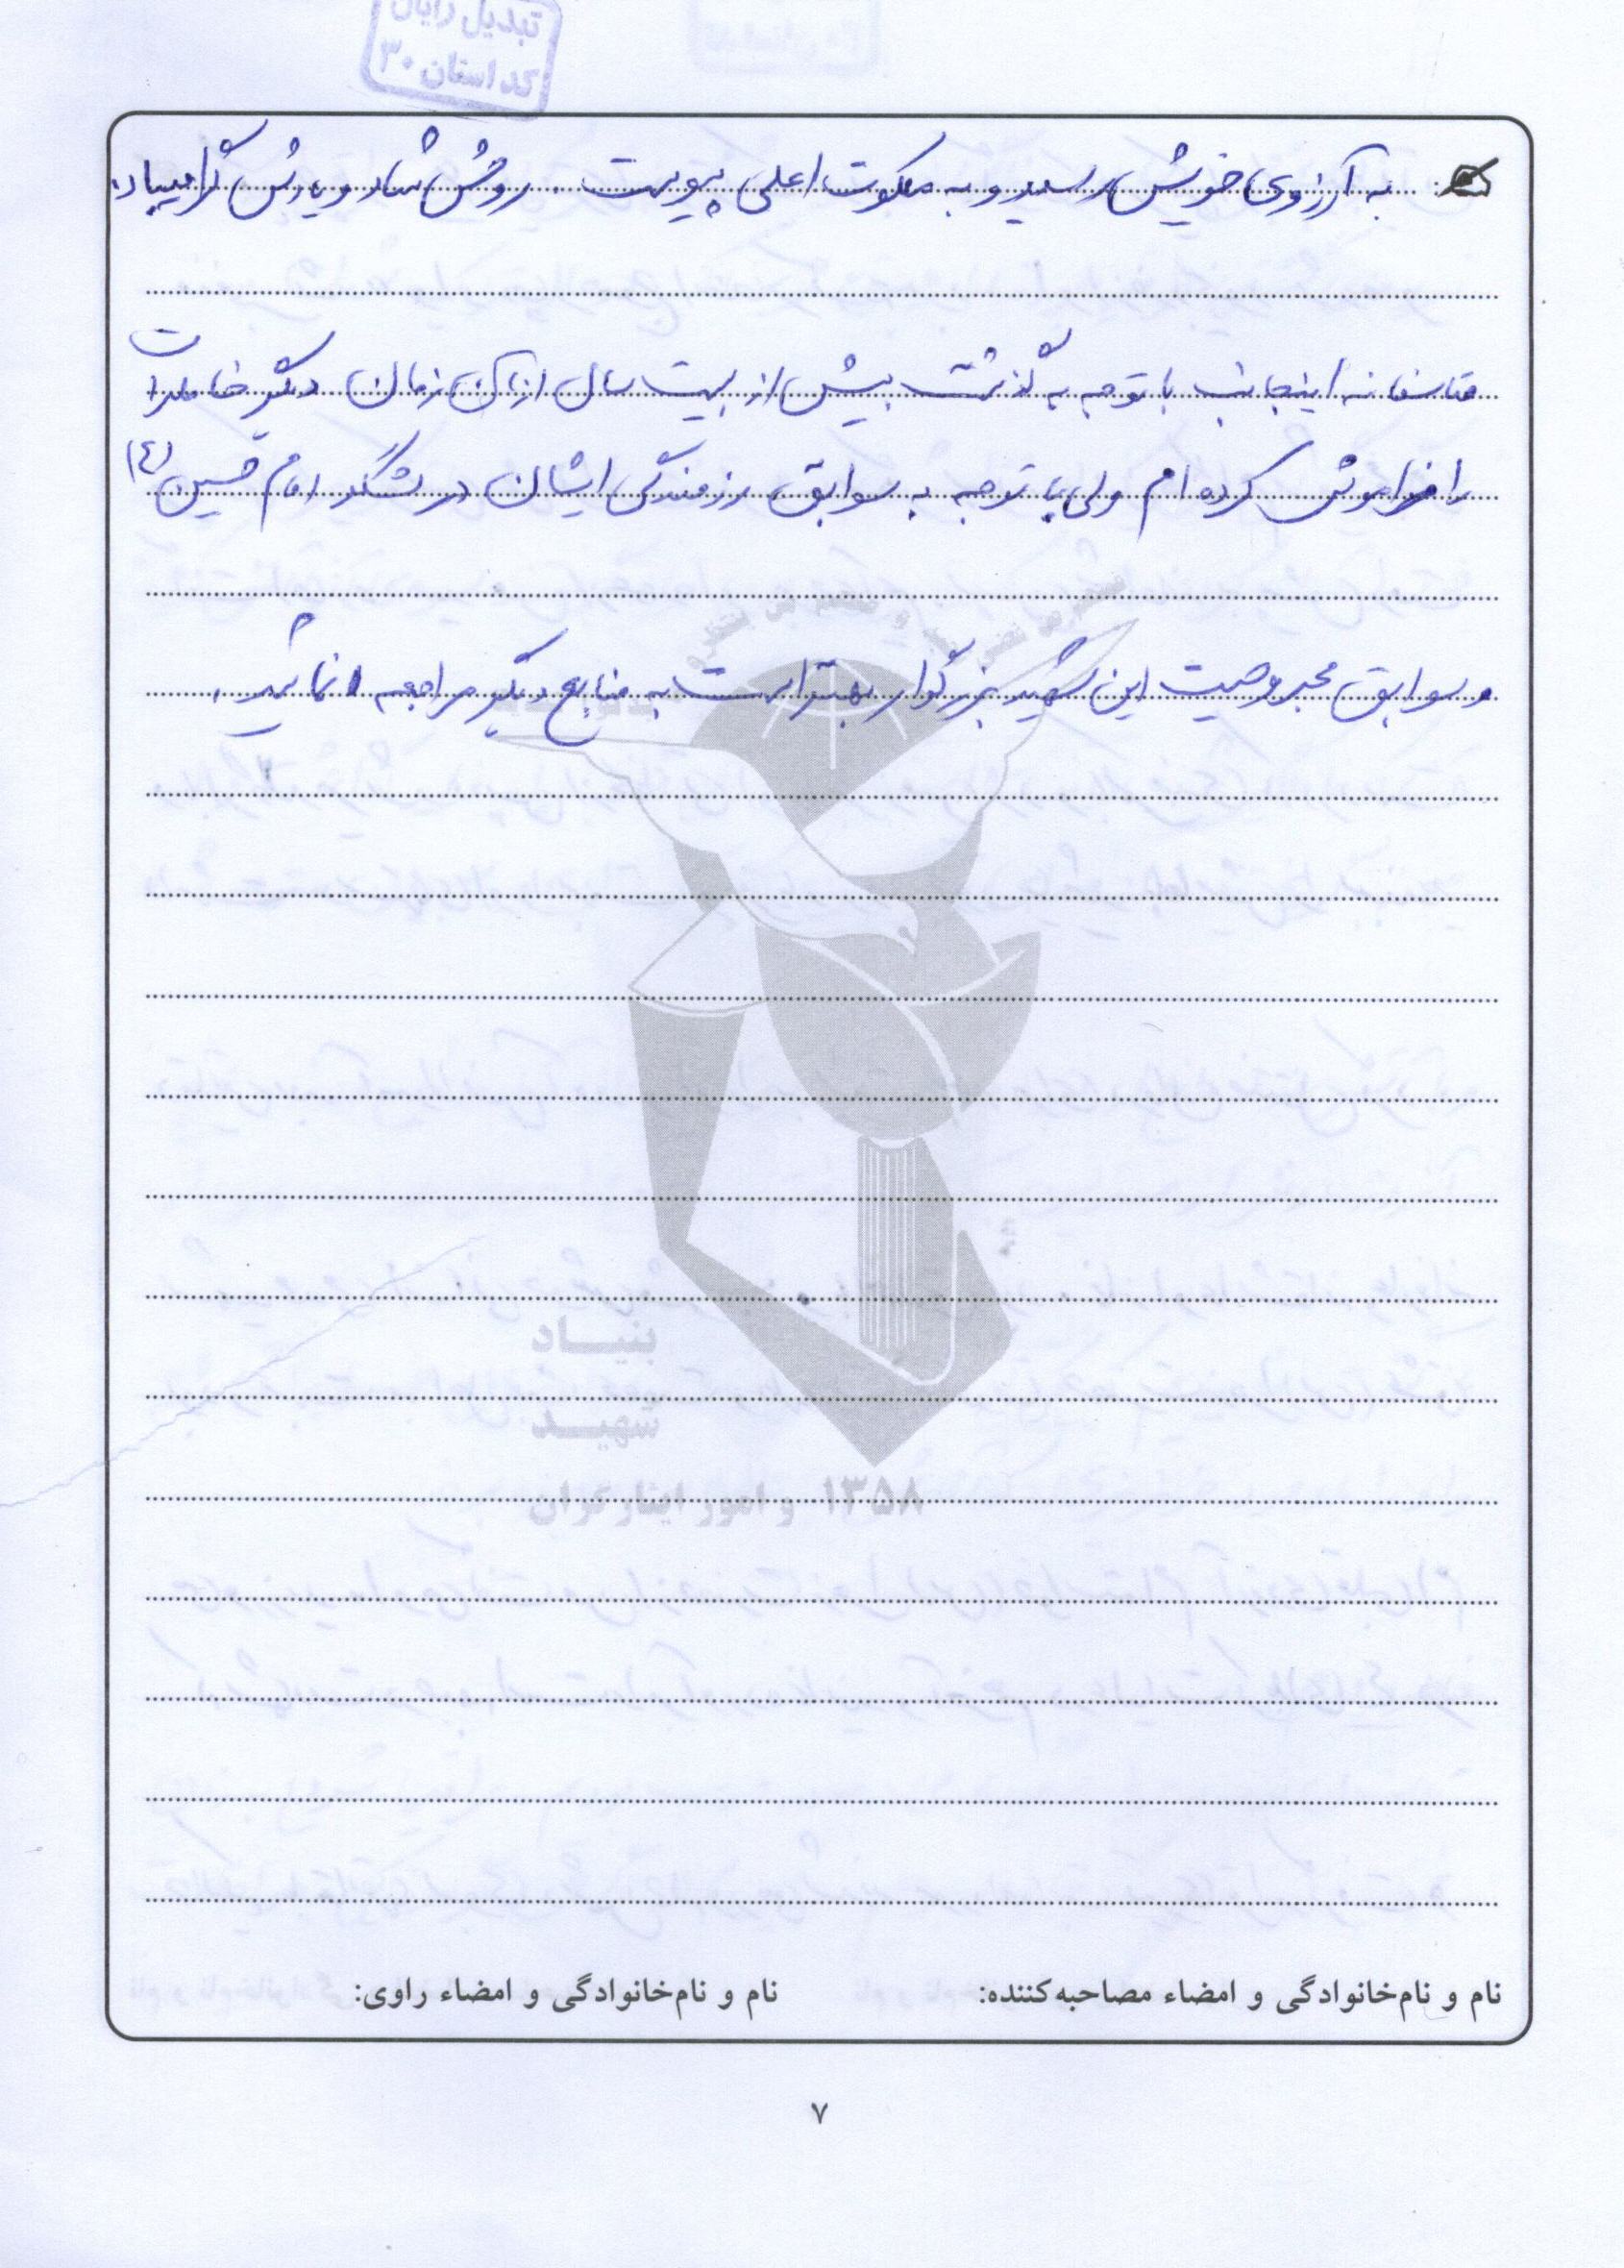 تبدیل رایان
کد استان ۳۰
به آرزوی خویش رسید و به ملکوت اعلی پیوست . روحش شاد و یادش گرامیباد.
متاسفانه اینجانب با توجه به گذشت بیش از بیست سال از آن زمان دیگر خاطرات
را فراموش کرده ام ولی با توجه به سوابق رزمندگی ایشان در لشگر امام حسین (ع)
و سوابق مجروحیت این شهید بزرگوار بهتر است به منابع دیگر مراجعه نمائید .
بنیاد
شهید
و امور ایثارگران ۱۳۵۸
نام و نام‌خانوادگی و امضاء مصاحبه‌کننده: نام و نام‌خانوادگی و امضاء راوی:
۷